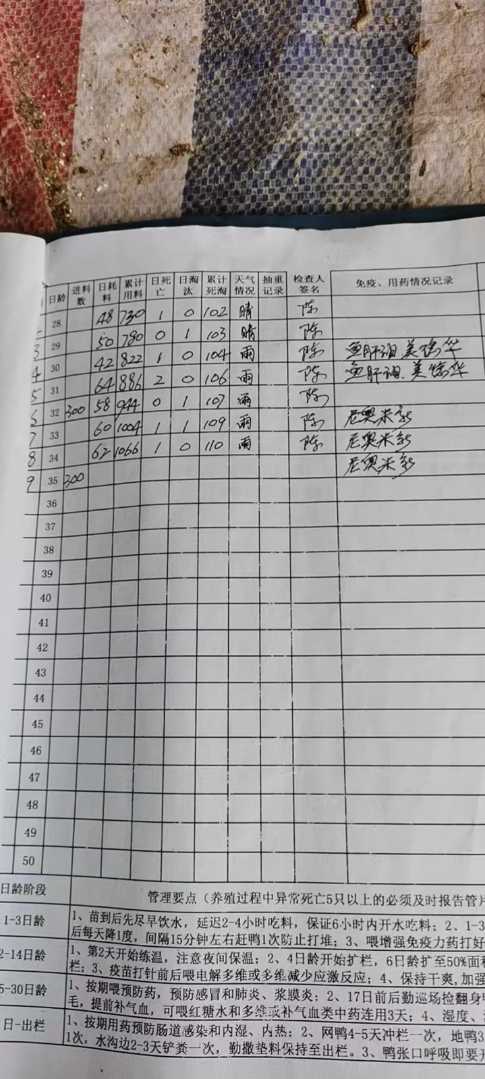 日龄 进料数 日耗料 累计用料 日死亡 日淘汰 累计死淘 天气情况 抽重记录 检查人签名 免疫、用药情况记录
28 48 730 1 0 102 晴 陈
2 29 50 780 0 1 103 晴 陈
3 30 42 822 1 0 104 雨 陈 鱼肝油
4 31 64 886 2 0 106 雨 陈 鱼肝油
5 32 300 58 944 0 1 107 雨 陈
6 33 60 1004 1 1 109 雨 陈
7 34 62 1066 1 0 110 雨 陈
8 35 300
9 36
37
38
39
40
41
42
43
44
45
46
47
48
49
50
日龄阶段 管理要点（养殖过程中异常死亡5只以上的必须及时报告管
1-3日龄 1、苗到后先尽早饮水，延迟2-4小时吃料，保证6小时内开水吃料；2、1-3
后每天降1度，间隔15分钟左右赶鸭1次防止打堆；3、喂增强免疫力药打好
2-14日龄 1、第2天开始练温，注意夜间保温；2、4日龄开始扩栏，6日龄扩至50%面积
栏；3、疫苗打针前后喂电解多维或多维减少应激反应；4、保持干爽,加强
5-30日龄 1、按期喂预防药，预防感冒和肺炎、浆膜炎；2、17日前后勤巡场捡翻身
毛，提前补气血，可喂红糖水和多维或补气血类中药连用3天；4、湿度、
日-出栏 1、按期用药预防肠道感染和内湿、内热；2、网鸭4-5天冲栏一次，地鸭3
1次，水沟边2-3天铲粪一次，勤撒垫料保持至出栏。3、鸭张口呼吸即要